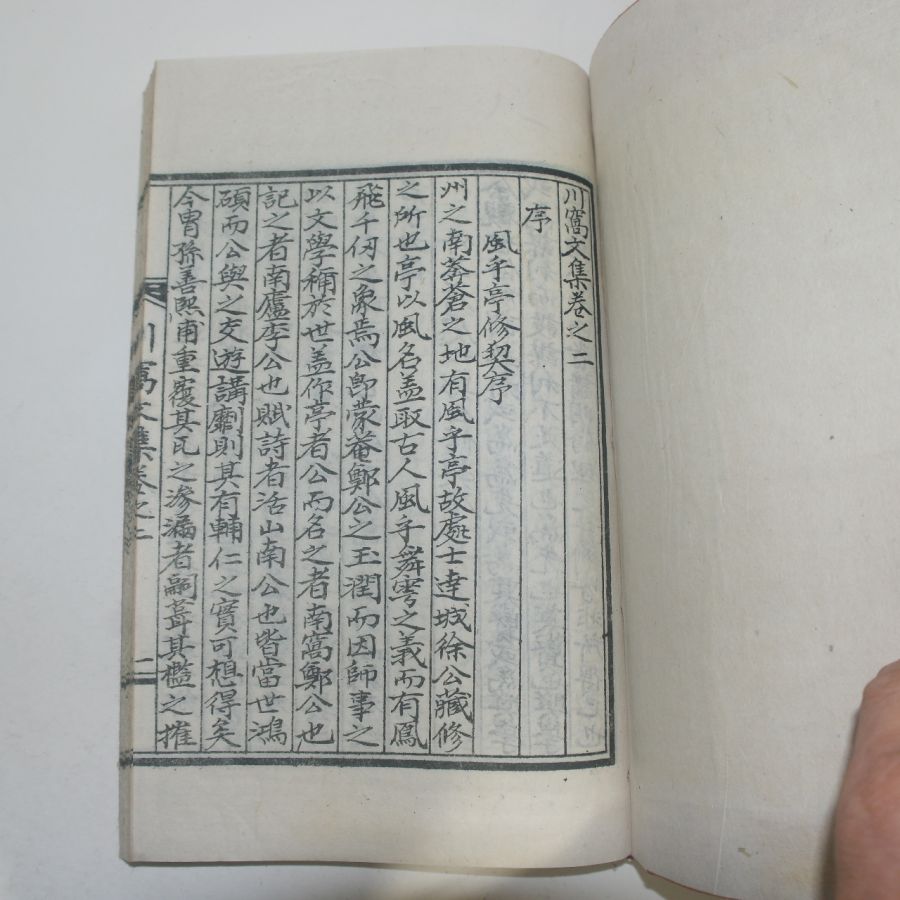 川窩文集卷之二
序
風乎亭修契序
州之南莽蒼之地有風乎亭故處士達城徐公藏修
之所也亭以風名盖取古人風乎舞雩之義而有鳳
飛千仞之象焉公卽蒙菴鄭公之玉潤而因師事之
以文學稱於世盖作亭者公而名之者南窩鄭公也
記之者南廬李公也賦詩者活山南公也皆當世鴻
碩而公與之交遊講劘則其有輔仁之實可想得矣
今胄孫善熙甫重覆其瓦之滲漏者嗣葺其檻之摧
川窩文集卷之二
二